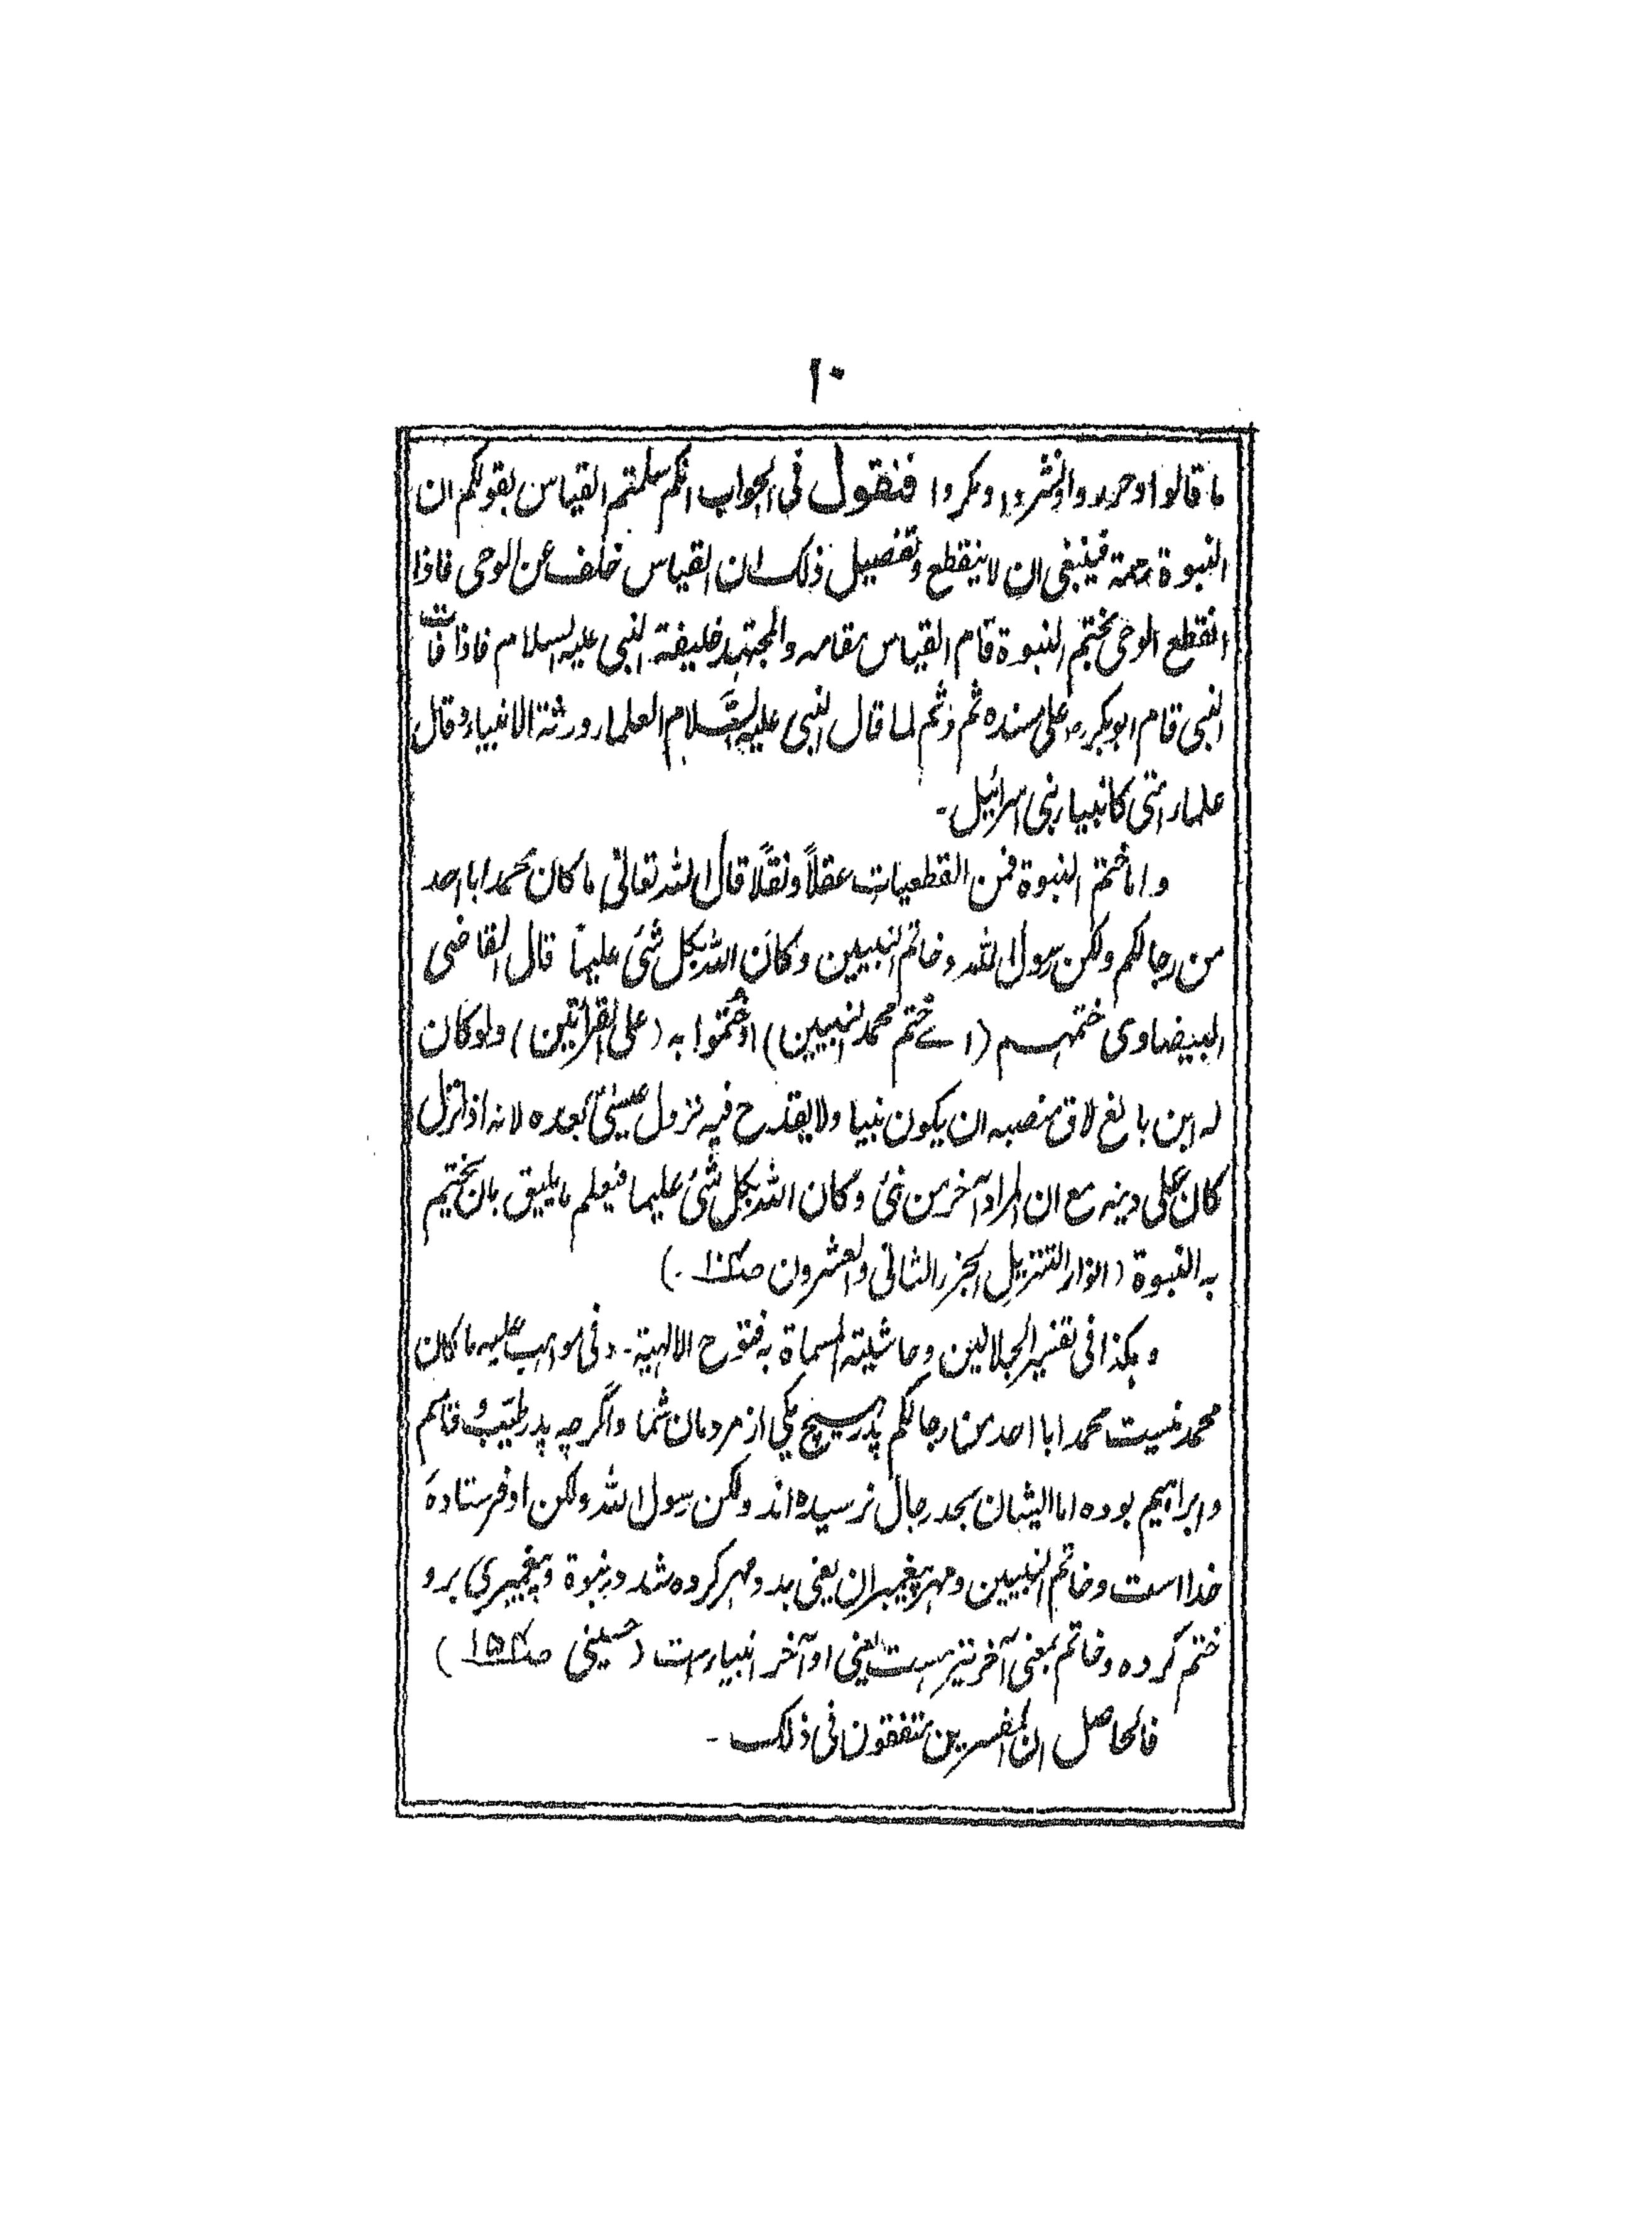 ۱۰
ما قالوا وحرروا ونشروا ومکروا فنقول فی الجواب انکم سلمتم القیاس بقولکم ان
النبوة رحمة فینبغی ان لا ینقطع وتفصیل ذلک ان القیاس خلف عن الوحی فاذا
انقطع الوحی بختم النبوة قام القیاس مقامہ والمجتہد خلیفۃ النبی علیہ السلام فاذا فات
النبی قام ابوبکرؓ علی مسندہ ثم وثم لما قال النبی علیہ السلام العلماء ورثۃ الانبیاء وقال
علماء امتی کانبیاء بنی اسرائیل۔
واما ختم النبوة فمن القطعیات عقلاً ونقلاً قال اللہ تعالیٰ ما کان محمد ابا احد
من رجالکم ولکن رسول اللہ وخاتم النبیین وکان اللہ بکل شئ علیما قال القاضی
البیضاوی ختمہم (اے ختم محمد النبیین) او خُتموا بہ (علی القرائتین) ولو کان
لہ ابن بالغ لاق منصبہ ان یکون نبیا ولا یقدح فیہ نزول عیسیٰؑ بعدہ لانہ اذا نزل
کان علی دینہ مع ان المراد آخر من نبئ وکان اللہ بکل شئ علیما فیعلم ما یلیق بان یختم
بہ النبوة (انوار التنزیل الجزء الثانی والعشرون
وہکذا فی تفسیر الجلالین وحاشیتہ المسماة بہ فتوح الالہیۃ۔ وفی مواہب علیہ ما کان
محمد نیست محمد ابا احد من رجالکم پدر ہیچ یکی از مردمان شما واگرچہ پدر طیّب و قاسم
وابراہیم بودہ اما ایشان بحد رجال نرسیدہ اند ولکن رسول اللہ ولکن او فرستادۂ
خدا است وخاتم النبیین ومہر پیغمبران یعنی بدو مہر کردہ شد در نبوة و پیغمبری برو
ختم کردہ وخاتم بمعنی آخر نیز ہست یعنی او آخر انبیاء است (حسینی
فالحاصل ان المفسرین متفقون فی ذلک۔